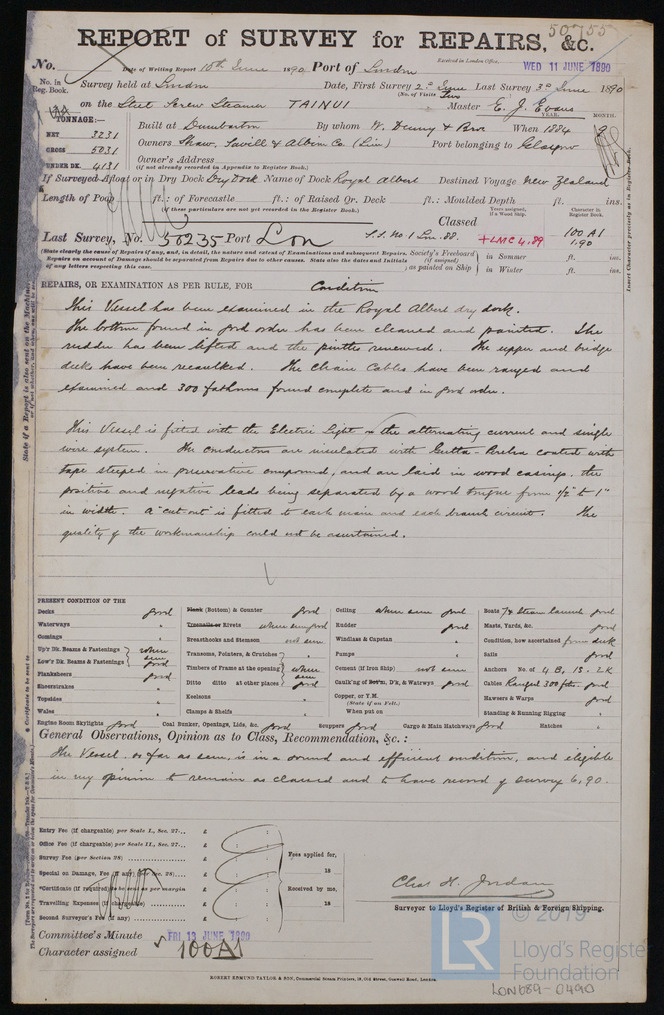 50755
REPORT of SURVEY for REPAIRS, &c.
Received in London Office,
No. Date of Writing Report 10th June 1890 Port of London WED 11 JUNE 1890
No. in Reg. Book. Survey held at London Date, First Survey 2d June Last Survey 3d June 1890
(No. of Visits Two
on the Steel Screw Steamer TAINUI Master E. J. Evans
TONNAGE:— YEAR. MONTH.
NET 3231 Built at Dumbarton By whom W. Denny & Bros When 1884
GROSS 5031 Owners Shaw, Savill & Albion Co (Lim) Port belonging to Glasgow
UNDER DK. 4131 Owner's Address
(if not already recorded in Appendix to Register Book.)
If Surveyed Afloat or in Dry Dock Dry Dock Name of Dock Royal Albert Destined Voyage New Zealand
Length of Poop ft.: of Forecastle ft.: of Raised Qr. Deck ft.: Moulded Depth ft. ins.
(If these particulars are not yet recorded in the Register Book.)
Years assigned, if a Wood Ship. Character in Register Book.
Classed 100 A1
Last Survey, No. 50235 Port Lon S.S. No 1 Lon. 88. +LMC 4.89 1.90
(State clearly the cause of Repairs, if any, and, in detail, the nature and extent of Examinations and subsequent Repairs.
Repairs on account of Damage should be separated from Repairs due to other causes. State also the dates and Initials
of any letters respecting this case.
Society's Freeboard (if assigned) as painted on Ship
in Summer ft. ins.
in Winter ft. ins.
Insert Character precisely as in Register Book.
REPAIRS, OR EXAMINATION AS PER RULE, FOR Condition
This Vessel has been examined in the Royal Albert dry dock.
The bottom found in good order has been cleaned and painted. The
rudder has been lifted and the pintles renewed. The upper and bridge
decks have been recaulked. The Chain Cables have been ranged and
examined and 300 fathoms found complete and in good order.
This Vessel is fitted with the Electric Light on the alternating current and single
wire system. The conductors are insulated with Gutta-Percha coated with
tape steeped in preservative compound, and are laid in wood casings, the
positive and negative leads being separated by a wood tongue from 1/2" to 1"
in width. A "cut-out" is fitted to each main and each branch circuit. The
quality of the workmanship could not be ascertained.
PRESENT CONDITION OF THE
Decks good
Waterways "
Comings "
Up'r Dk. Beams & Fastenings where seen
Low'r Dk. Beams & Fastenings good
Planksheers good
Sheerstrakes "
Topsides "
Wales "
Plank (Bottom) & Counter good
Treenails or Rivets where seen good
Breasthooks and Stemson not seen
Transoms, Pointers, & Crutches
Timbers of Frame at the opening where seen
Ditto ditto at other places good
Keelsons "
Clamps & Shelfs "
Ceiling where seen good
Rudder good
Windlass & Capstan "
Pumps "
Cement (if Iron Ship) not seen
Caulk'ng of Bot'm, D'k, & Watrwys good
Copper, or Y.M.
(State if on Felt.)
When put on
Boats 7 & Steam launch good
Masts, Yards, &c. good
Condition, how ascertained from deck
Sails good
Anchors No. of 4 B, 1S. 2K
Cables Ranged 300 fths good
Hawsers & Warps good
Standing & Running Rigging "
Engine Room Skylights good Coal Bunker, Openings, Lids, &c. good Scuppers good Cargo & Main Hatchways good Hatches "
General Observations, Opinion as to Class, Recommendation, &c.:
The Vessel, so far as seen, is in a sound and efficient condition, and eligible
in my opinion to remain as classed and to have record of survey 6,90.
Entry Fee (if chargeable) per Scale I., Sec. 27... £ : :
Office Fee (if chargeable) per Scale II., Sec. 27... £ : :
Survey Fee (per Section 28) £ : :
Special or Damage, Fee (if any) (per Sec. 28) £ : :
*Certificate (if required) to be sent as per margin £ : :
Travelling Expenses (if chargeable) £ : :
Second Surveyor's Fee (if any) £ : :
Fees applied for,
18
Received by me,
18
Chas H. Jordan
Surveyor to Lloyd's Register of British & Foreign Shipping.
Committee's Minute FRI 13 JUNE 1890
Character assigned 100A1
ROBERT EDMUND TAYLOR & SON, Commercial Steam Printers, 19, Old Street, Goswell Road, London.
© 2019
LR
Lloyd's Register
Foundation
LON689-0490